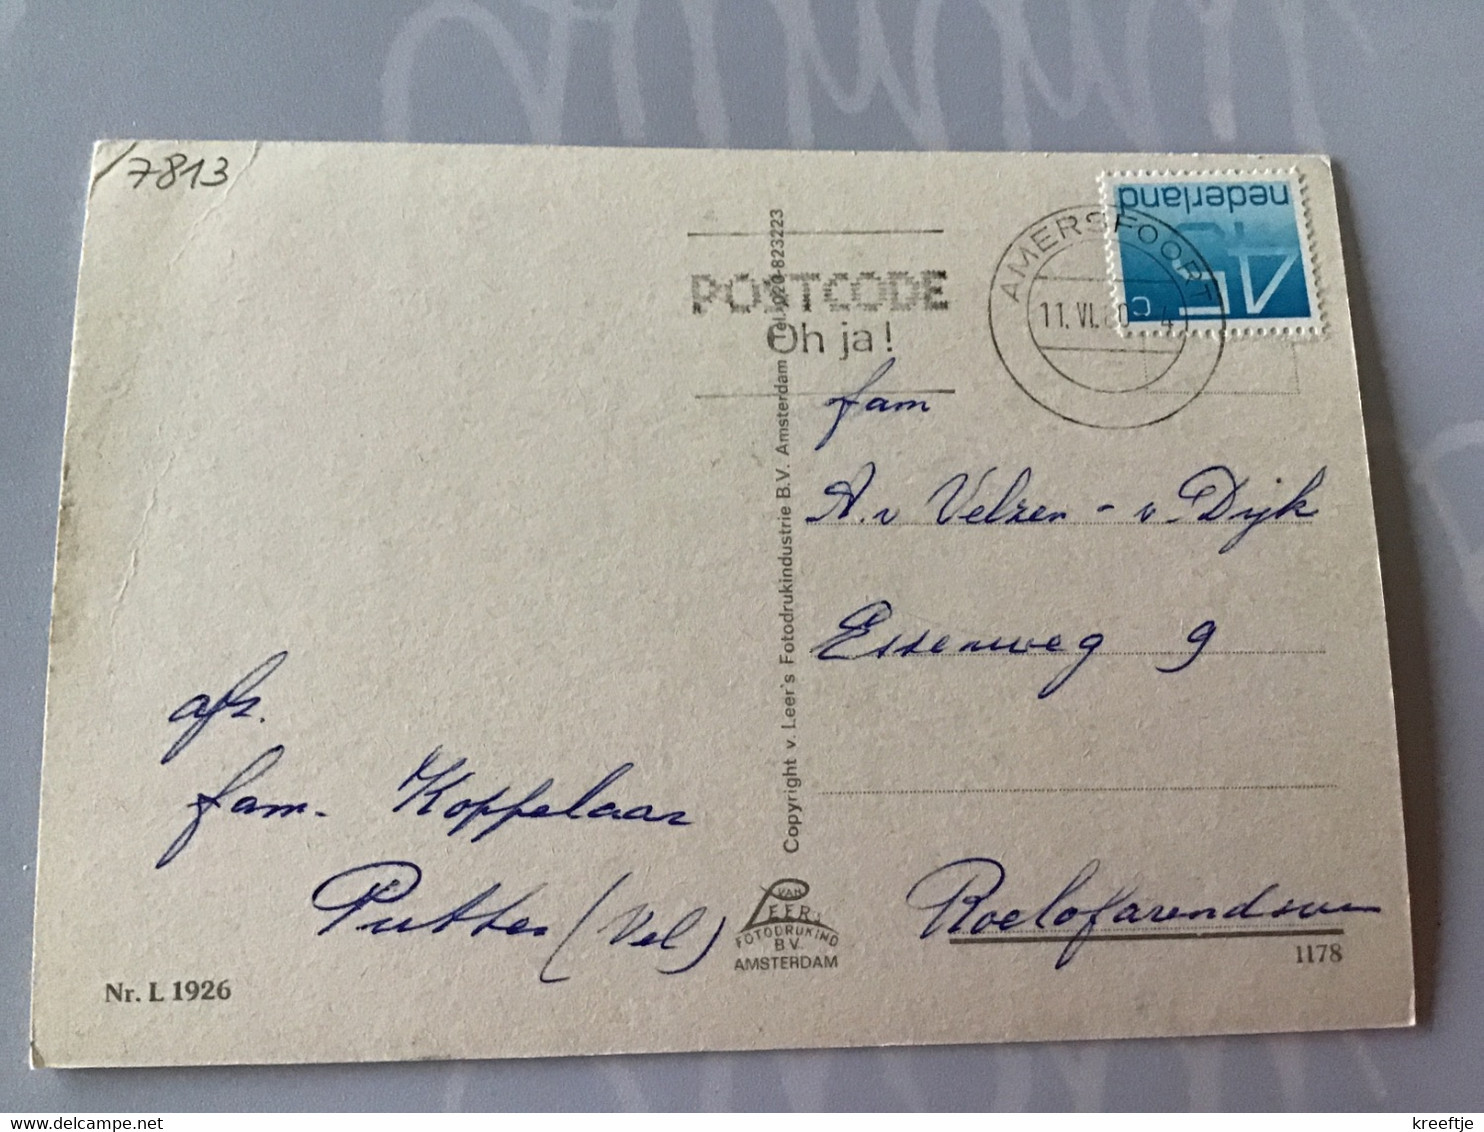 7813
nederland
45
c
AMERSFOORT
11.VI.80 4
POSTCODE
Oh ja!
fam
A. v Velzen - v. Dijk
Essenweg 9
Roelofarendsveen
1178
afz.
fam. Koppelaar
Putten (Vel)
Copyright v. Leer's Fotodrukindustrie B.V. Amsterdam Tel. 020-823223
VAN
LEER'S
FOTODRUKIND
B.V.
AMSTERDAM
Nr. L 1926
kreeftje